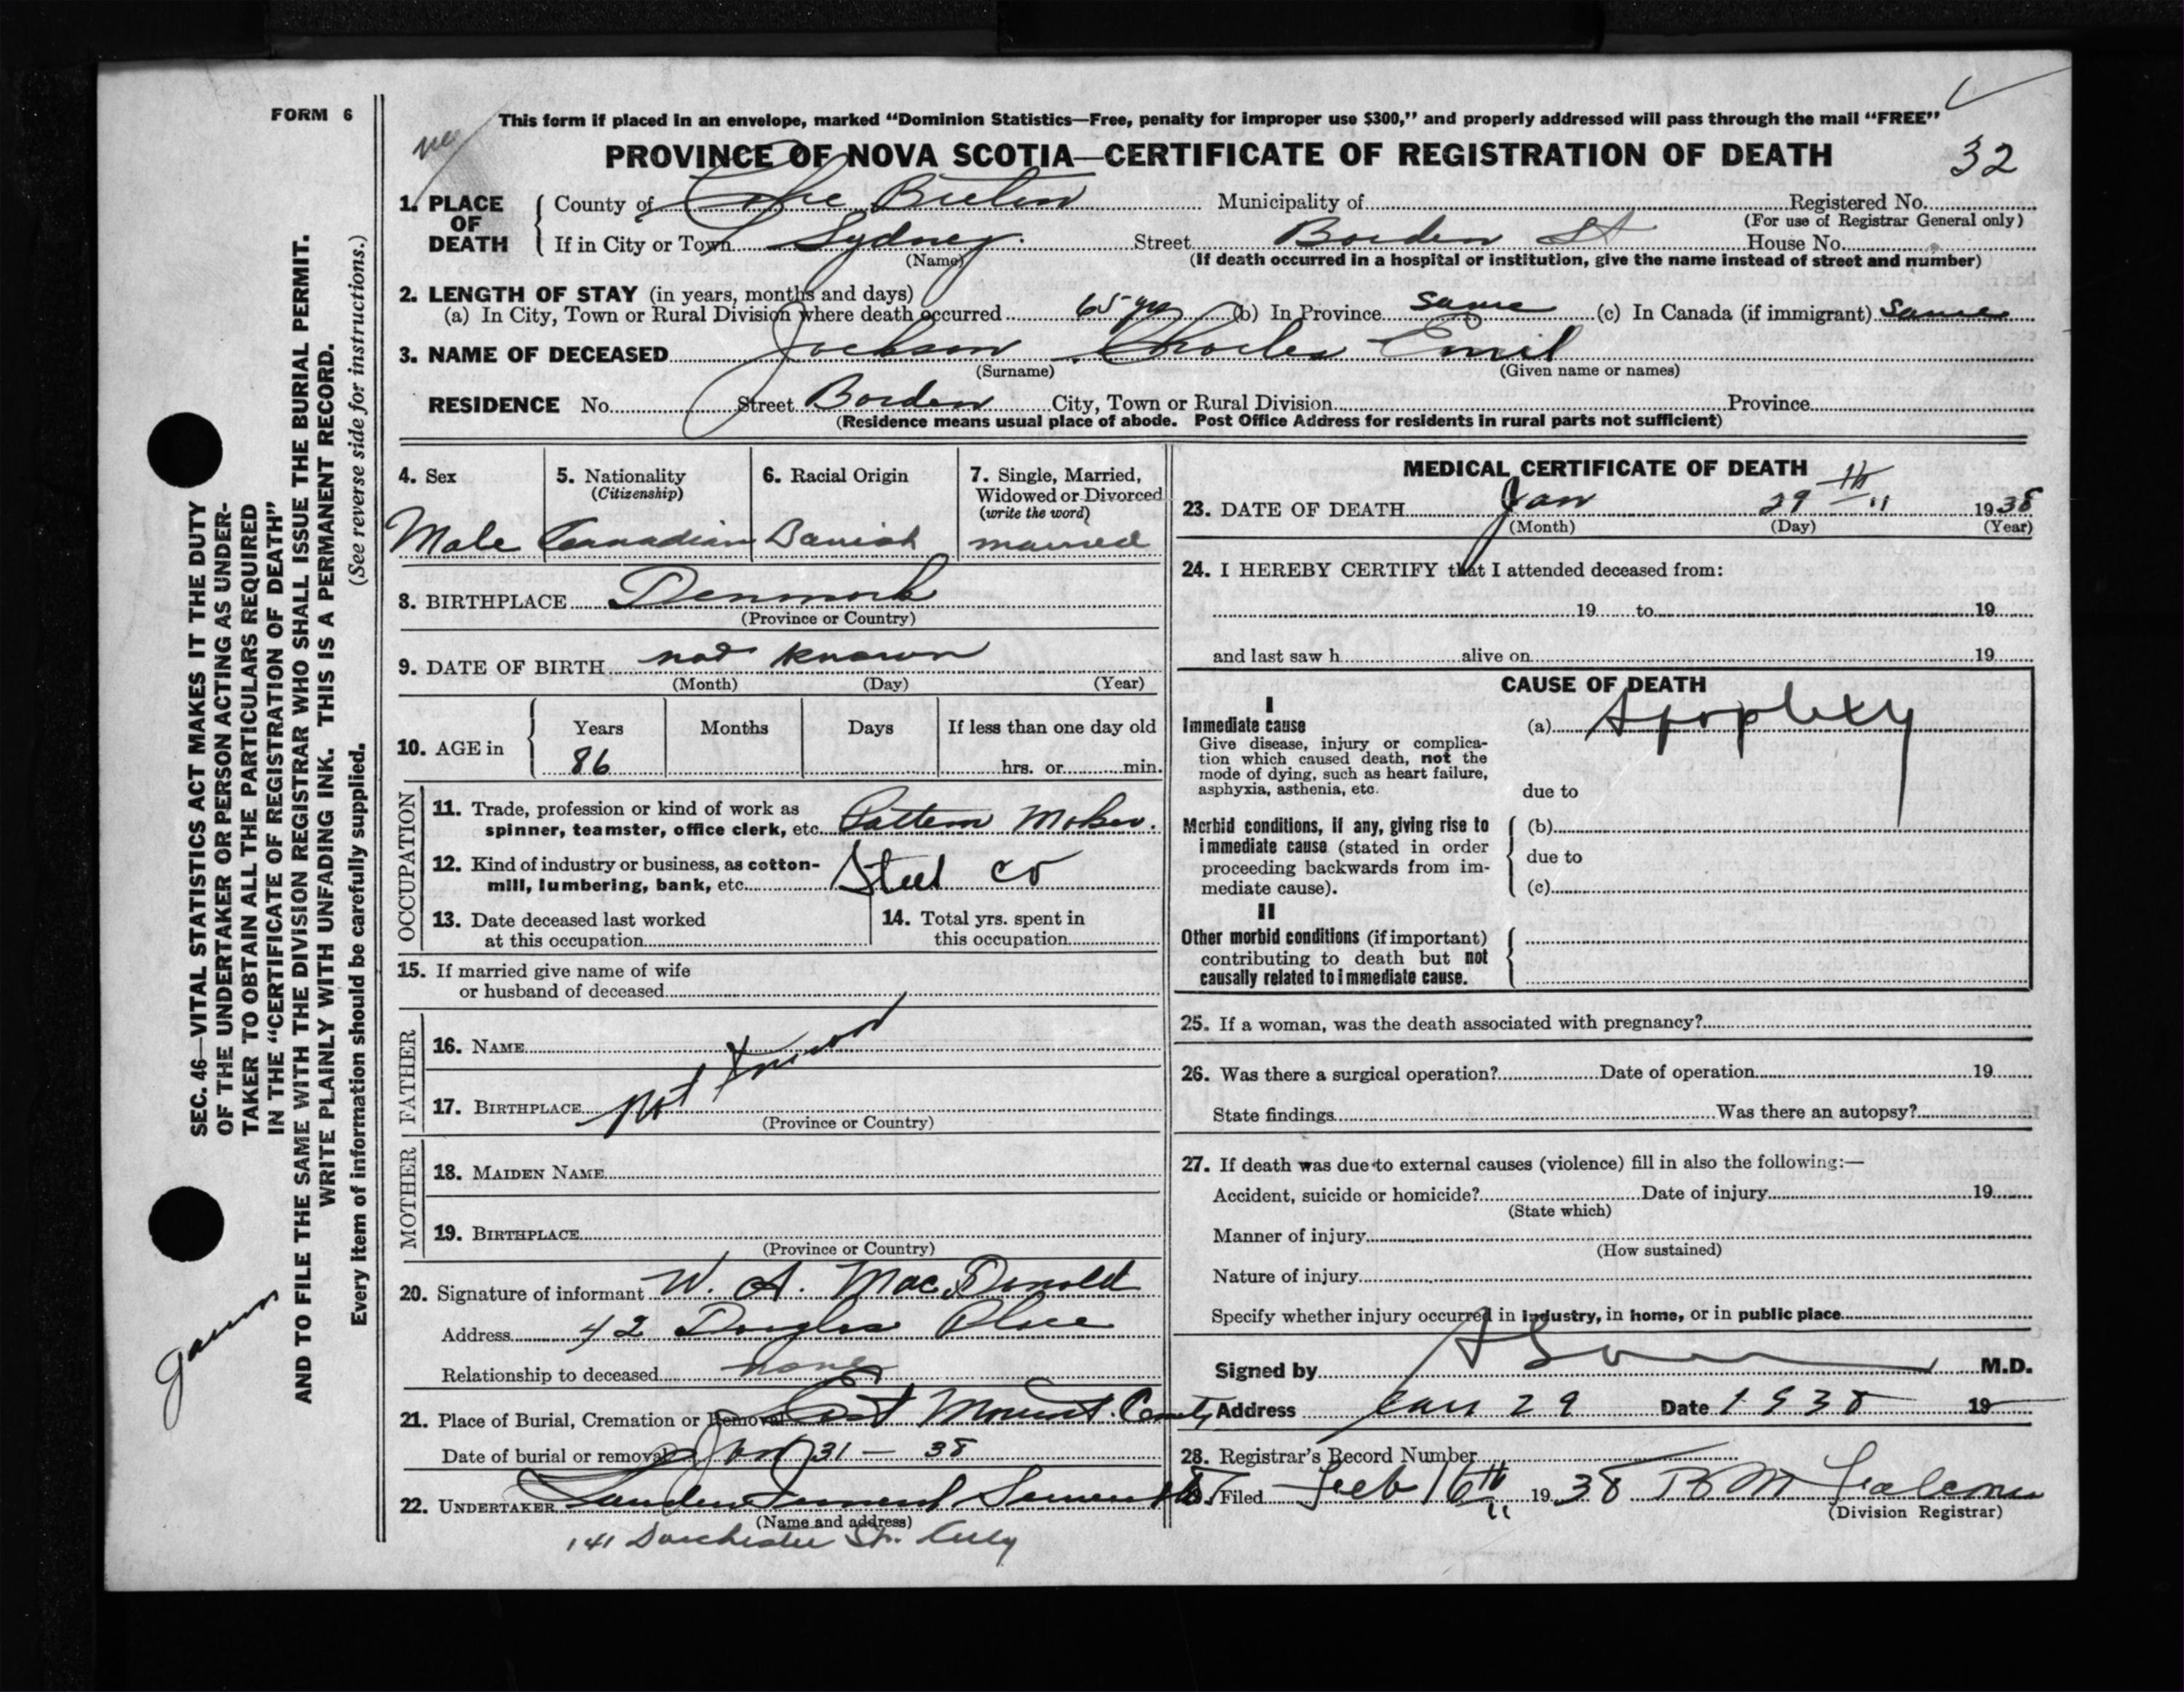 FORM 6
This form if placed in an envelope, marked "Dominion Statistics—Free, penalty for improper use $300," and properly addressed will pass through the mail "FREE"
PROVINCE OF NOVA SCOTIA—CERTIFICATE OF REGISTRATION OF DEATH
32
1. PLACE OF DEATH
County of Cape Breton Municipality of Registered No.
(For use of Registrar General only)
If in City or Town Sydney. Street Borden St House No.
(Name) (If death occurred in a hospital or institution, give the name instead of street and number)
2. LENGTH OF STAY (in years, months and days)
(a) In City, Town or Rural Division where death occurred 65 yrs (b) In Province same (c) In Canada (if immigrant) same
3. NAME OF DECEASED Jackson Charles Emil
(Surname) (Given name or names)
RESIDENCE No. Street Borden City, Town or Rural Division Province
(Residence means usual place of abode. Post Office Address for residents in rural parts not sufficient)
4. Sex
Male
5. Nationality
(Citizenship)
Canadian
6. Racial Origin
Danish
7. Single, Married,
Widowed or Divorced
(write the word)
married
8. BIRTHPLACE Denmark
(Province or Country)
9. DATE OF BIRTH not known
(Month) (Day) (Year)
10. AGE in
Years Months Days If less than one day old
86 hrs. or min.
OCCUPATION
11. Trade, profession or kind of work as
spinner, teamster, office clerk, etc. Pattern Maker.
12. Kind of industry or business, as cotton-
mill, lumbering, bank, etc. Steel Co
13. Date deceased last worked
at this occupation
14. Total yrs. spent in
this occupation
15. If married give name of wife
or husband of deceased
FATHER
16. NAME
17. BIRTHPLACE not known
(Province or Country)
MOTHER
18. MAIDEN NAME
19. BIRTHPLACE
(Province or Country)
20. Signature of informant W. A. MacDonald
Address 42 Douglas Place
Relationship to deceased none
21. Place of Burial, Cremation or Removal East Mount.
Date of burial or removal Jan 31 – 38
22. UNDERTAKER
(Name and address)
141 Dorchester St. City
MEDICAL CERTIFICATE OF DEATH
23. DATE OF DEATH Jan 29th 1938
(Month) (Day) (Year)
24. I HEREBY CERTIFY that I attended deceased from:
19 to 19
and last saw h alive on 19
CAUSE OF DEATH
I
Immediate cause
Give disease, injury or complica-
tion which caused death, not the
mode of dying, such as heart failure,
asphyxia, asthenia, etc.
(a) Apoplexy
due to
Morbid conditions, if any, giving rise to
immediate cause (stated in order
proceeding backwards from im-
mediate cause).
(b)
due to
(c)
II
Other morbid conditions (if important)
contributing to death but not
causally related to immediate cause.
25. If a woman, was the death associated with pregnancy?
26. Was there a surgical operation? Date of operation 19
State findings Was there an autopsy?
27. If death was due to external causes (violence) fill in also the following:—
Accident, suicide or homicide? Date of injury 19
(State which)
Manner of injury
(How sustained)
Nature of injury
Specify whether injury occurred in industry, in home, or in public place
Signed by M.D.
Address Jan 29 Date 1938 19
28. Registrar's Record Number
Filed Feb 16th 1938
(Division Registrar)
SEC. 46—VITAL STATISTICS ACT MAKES IT THE DUTY
OF THE UNDERTAKER OR PERSON ACTING AS UNDER-
TAKER TO OBTAIN ALL THE PARTICULARS REQUIRED
IN THE "CERTIFICATE OF REGISTRATION OF DEATH"
AND TO FILE THE SAME WITH THE DIVISION REGISTRAR WHO SHALL ISSUE THE BURIAL PERMIT.
WRITE PLAINLY WITH UNFADING INK. THIS IS A PERMANENT RECORD.
Every item of information should be carefully supplied. (See reverse side for instructions.)